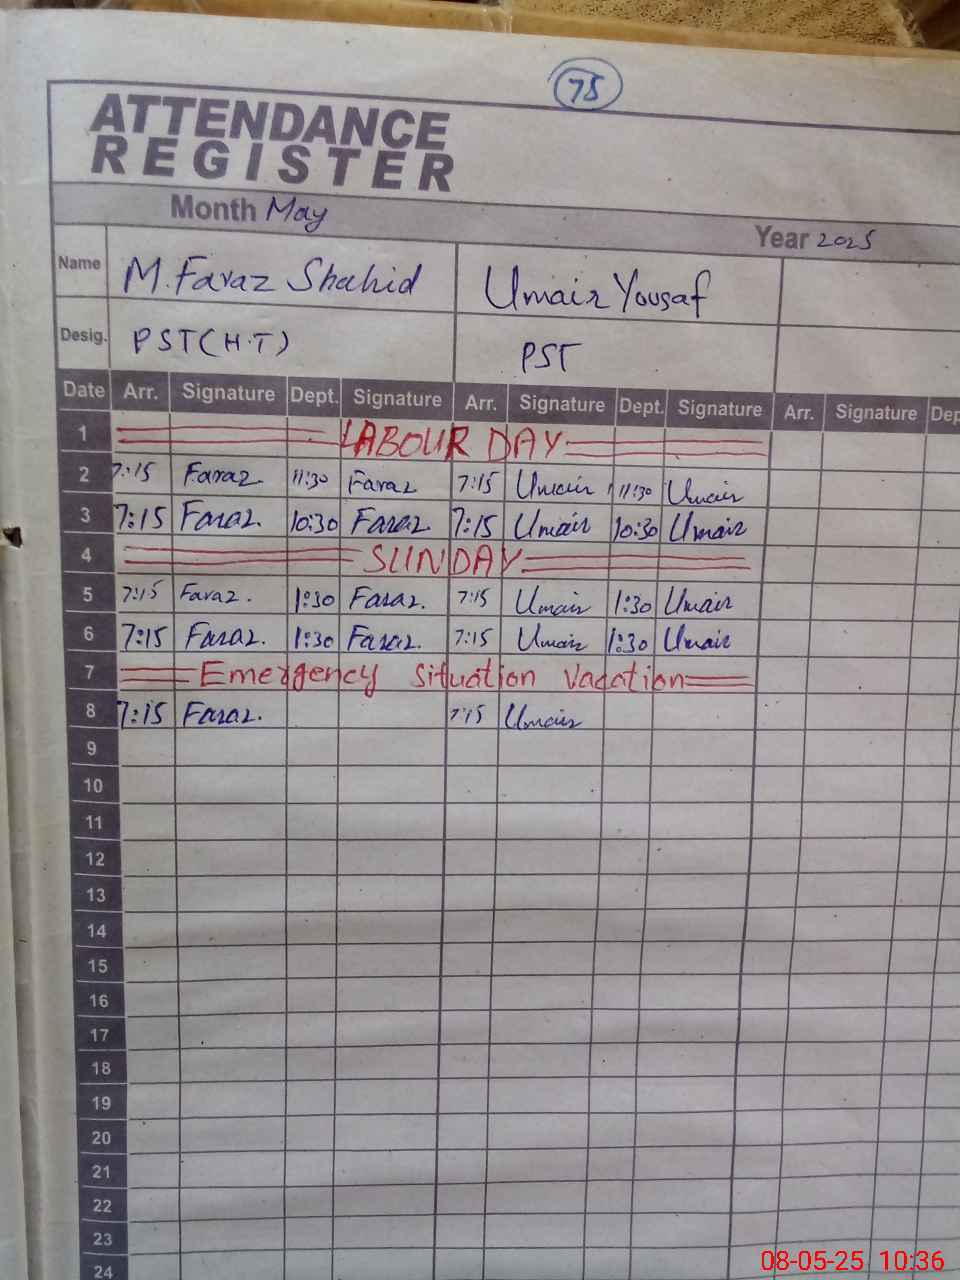 75
ATTENDANCE
REGISTER
Month May
Year 2025
Name M. Faraz Shahid Umair Yousaf
Desig. PST (H.T) PST
Date Arr. Signature Dept. Signature Arr. Signature Dept. Signature Arr. Signature Dep
1 LABOUR DAY
2 7:15 Faraz. 11:30 Faraz 7:15 Umair 11:30 Umair
3 7:15 Faraz. 10:30 Faraz. 7:15 Umair 10:30 Umair
4 SUNDAY
5 7:15 Faraz. 1:30 Faraz. 7:15 Umair 1:30 Umair
6 7:15 Faraz. 1:30 Faraz. 7:15 Umair 1:30 Umair
7 Emergency Situation Vacation
8 7:15 Faraz. 7:15 Umair
9
10
11
12
13
14
15
16
17
18
19
20
21
22
23
24
08-05-25 10:36